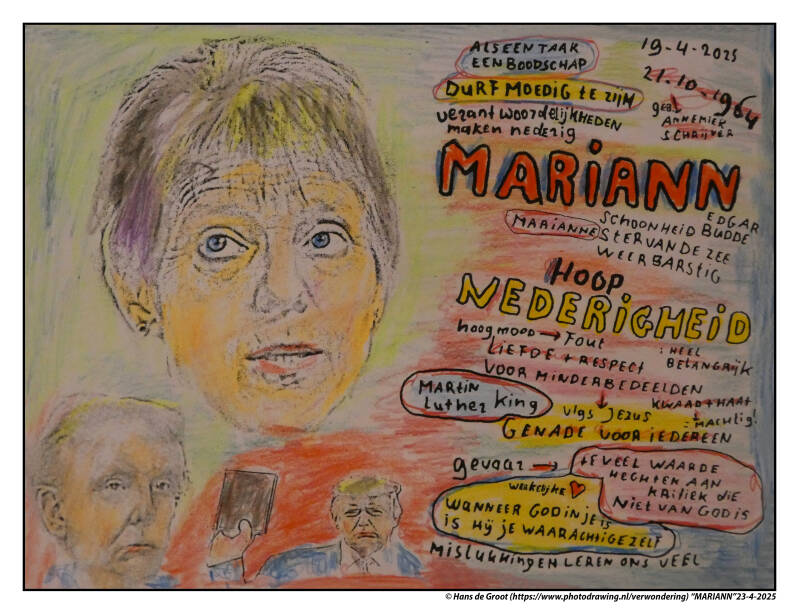 ALS EEN TAAK
EEN BOODSCHAP
19-4-2025
DURF MOEDIG TE ZIJN
21.10.1964
verantwoordelijkheden
maken nederig
geb.
ANNEMIEK
SCHRIJVER
MARIANN
EDGAR
BUDDE
MARIANNE
SCHOONHEID
STER VAN DE ZEE
WEERBARSTIG
HOOP
NEDERIGHEID
hoogmoed → FOUT
LIEFDE + RESPECT
: HEEL
BELANGRIJK
VOOR MINDERBEDEELDEN
MARTIN
Luther King
KWAAD + HAAT
: MACHTIG!
vlgs JEZUS
GENADE VOOR IEDEREEN
gevaar →
TE VEEL WAARDE
HECHTEN AAN
KRITIEK DIE
NIET VAN GOD IS
werkelijke
WANNEER GOD IN JE IS
IS HIJ JE WAARACHTIGE ZELF
MISLUKKINGEN LEREN ONS VEEL
© Hans de Groot (https://www.photodrawing.nl/verwondering) "MARIANN"23-4-2025